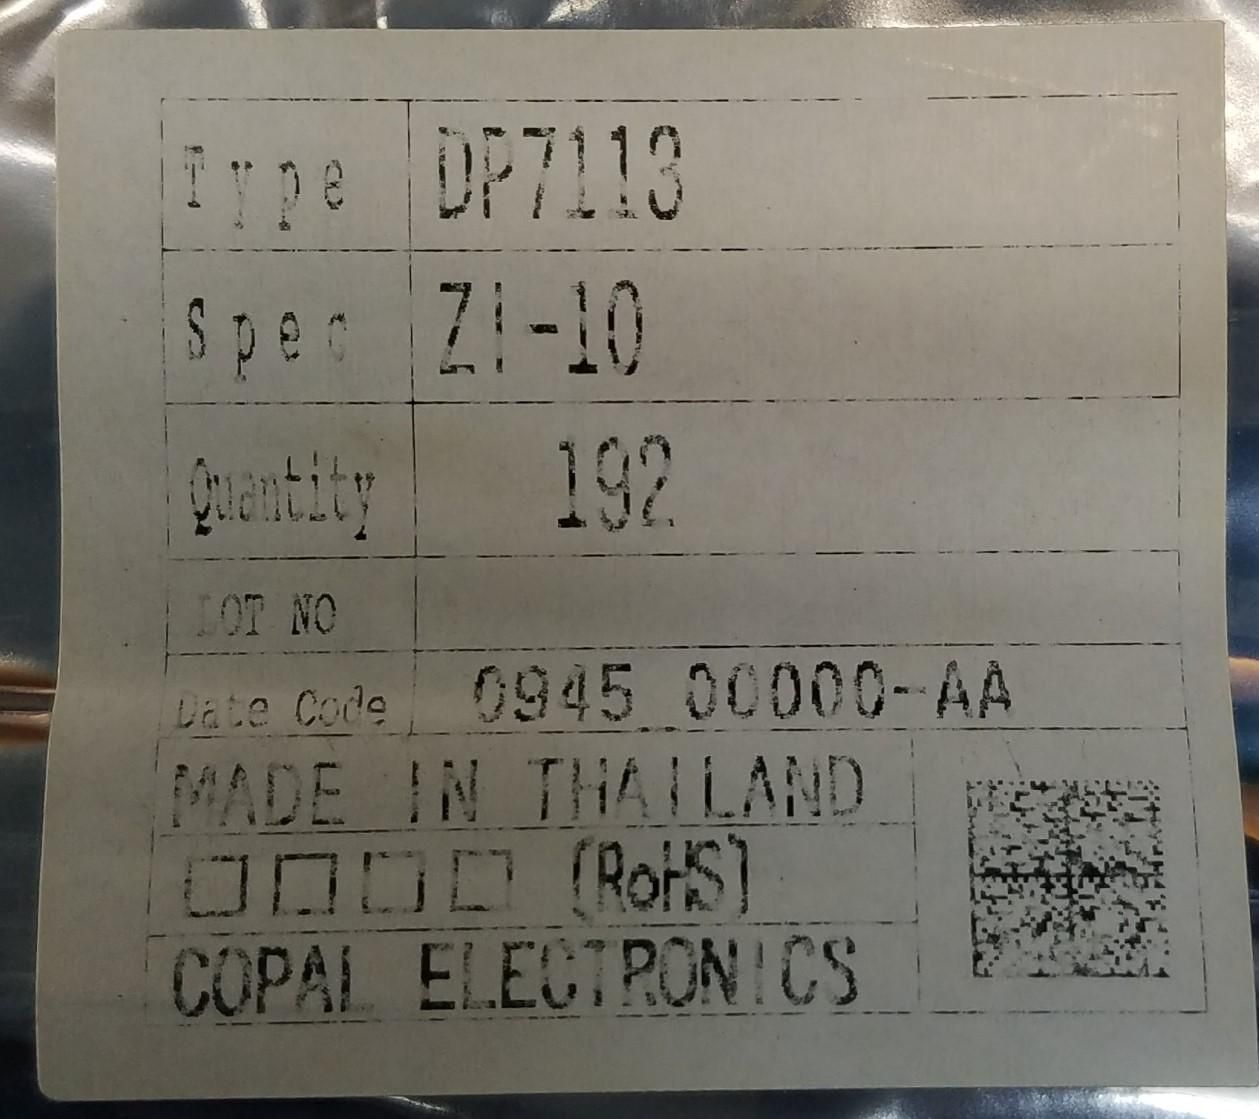 Type DP7113
Spec ZI-10
Quantity 192
LOT NO
Date Code 0945 00000-AA
MADE IN THAILAND
□□□□ (RoHS)
COPAL ELECTRONICS